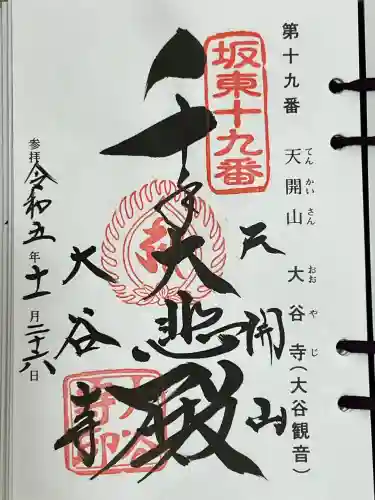 第十九番　天開山　大谷寺(大谷観音)
てんかいさん　おおやじ
坂東十九番
天開山
千手大悲殿
大谷寺
参拝 令和五年十一月二十六日